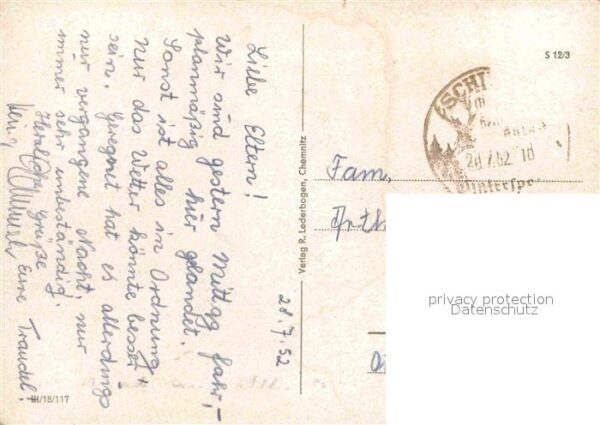 Liebe Eltern!
Wir sind gestern Mittag fahr,-
planmäßig hier glandet.
Sonst ist alles in Ordnung,
Nur das Wetter könnte besser
sein. Geregnet hat es allerdings
nur vergangene Nacht, nur
immer sehr unbeständig.
Herzl. Grüße
Eure Traudel.
28.7.52
III/18/117
Verlag R. Lederbogen, Chemnitz
S 12/3
SCHI
28.7.52
Winterspo
Fam.
privacy protection
Datenschutz